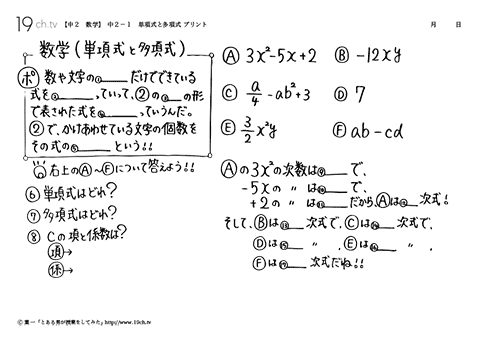 19ch.tv 【中2 数学】 中2-1 単項式と多項式 プリント 月 日
数学(単項式と多項式)
ポ 数や文字の①____だけでできている
式を②____っていって、②の③__の形
で表された式を④____っていうんだ。
②で、かけあわせている文字の個数を
その式の⑤____という!!
右上のⒶ~Ⓕについて答えよう!!
⑥ 単項式はどれ?
⑦ 多項式はどれ?
⑧ Cの項と係数は?
項→
係→
Ⓐ 3x²-5x+2 Ⓑ -12xy
Ⓒ a/4-ab²+3 Ⓓ 7
Ⓔ 3/2x²y Ⓕ ab-cd
Ⓐの3x²の次数は⑨__で、
-5xの 〃 は⑩__で、
+2の 〃 は⑪__だから、Ⓐは⑫__次式!
そして、Ⓑは⑬__次式で、Ⓒは⑭__次式で、
Ⓓは⑮__ 〃 、Ⓔは⑯__ 〃 、
Ⓕは⑰__次式だね!!
Ⓒ葉一「とある男が授業をしてみた」http://www.19ch.tv